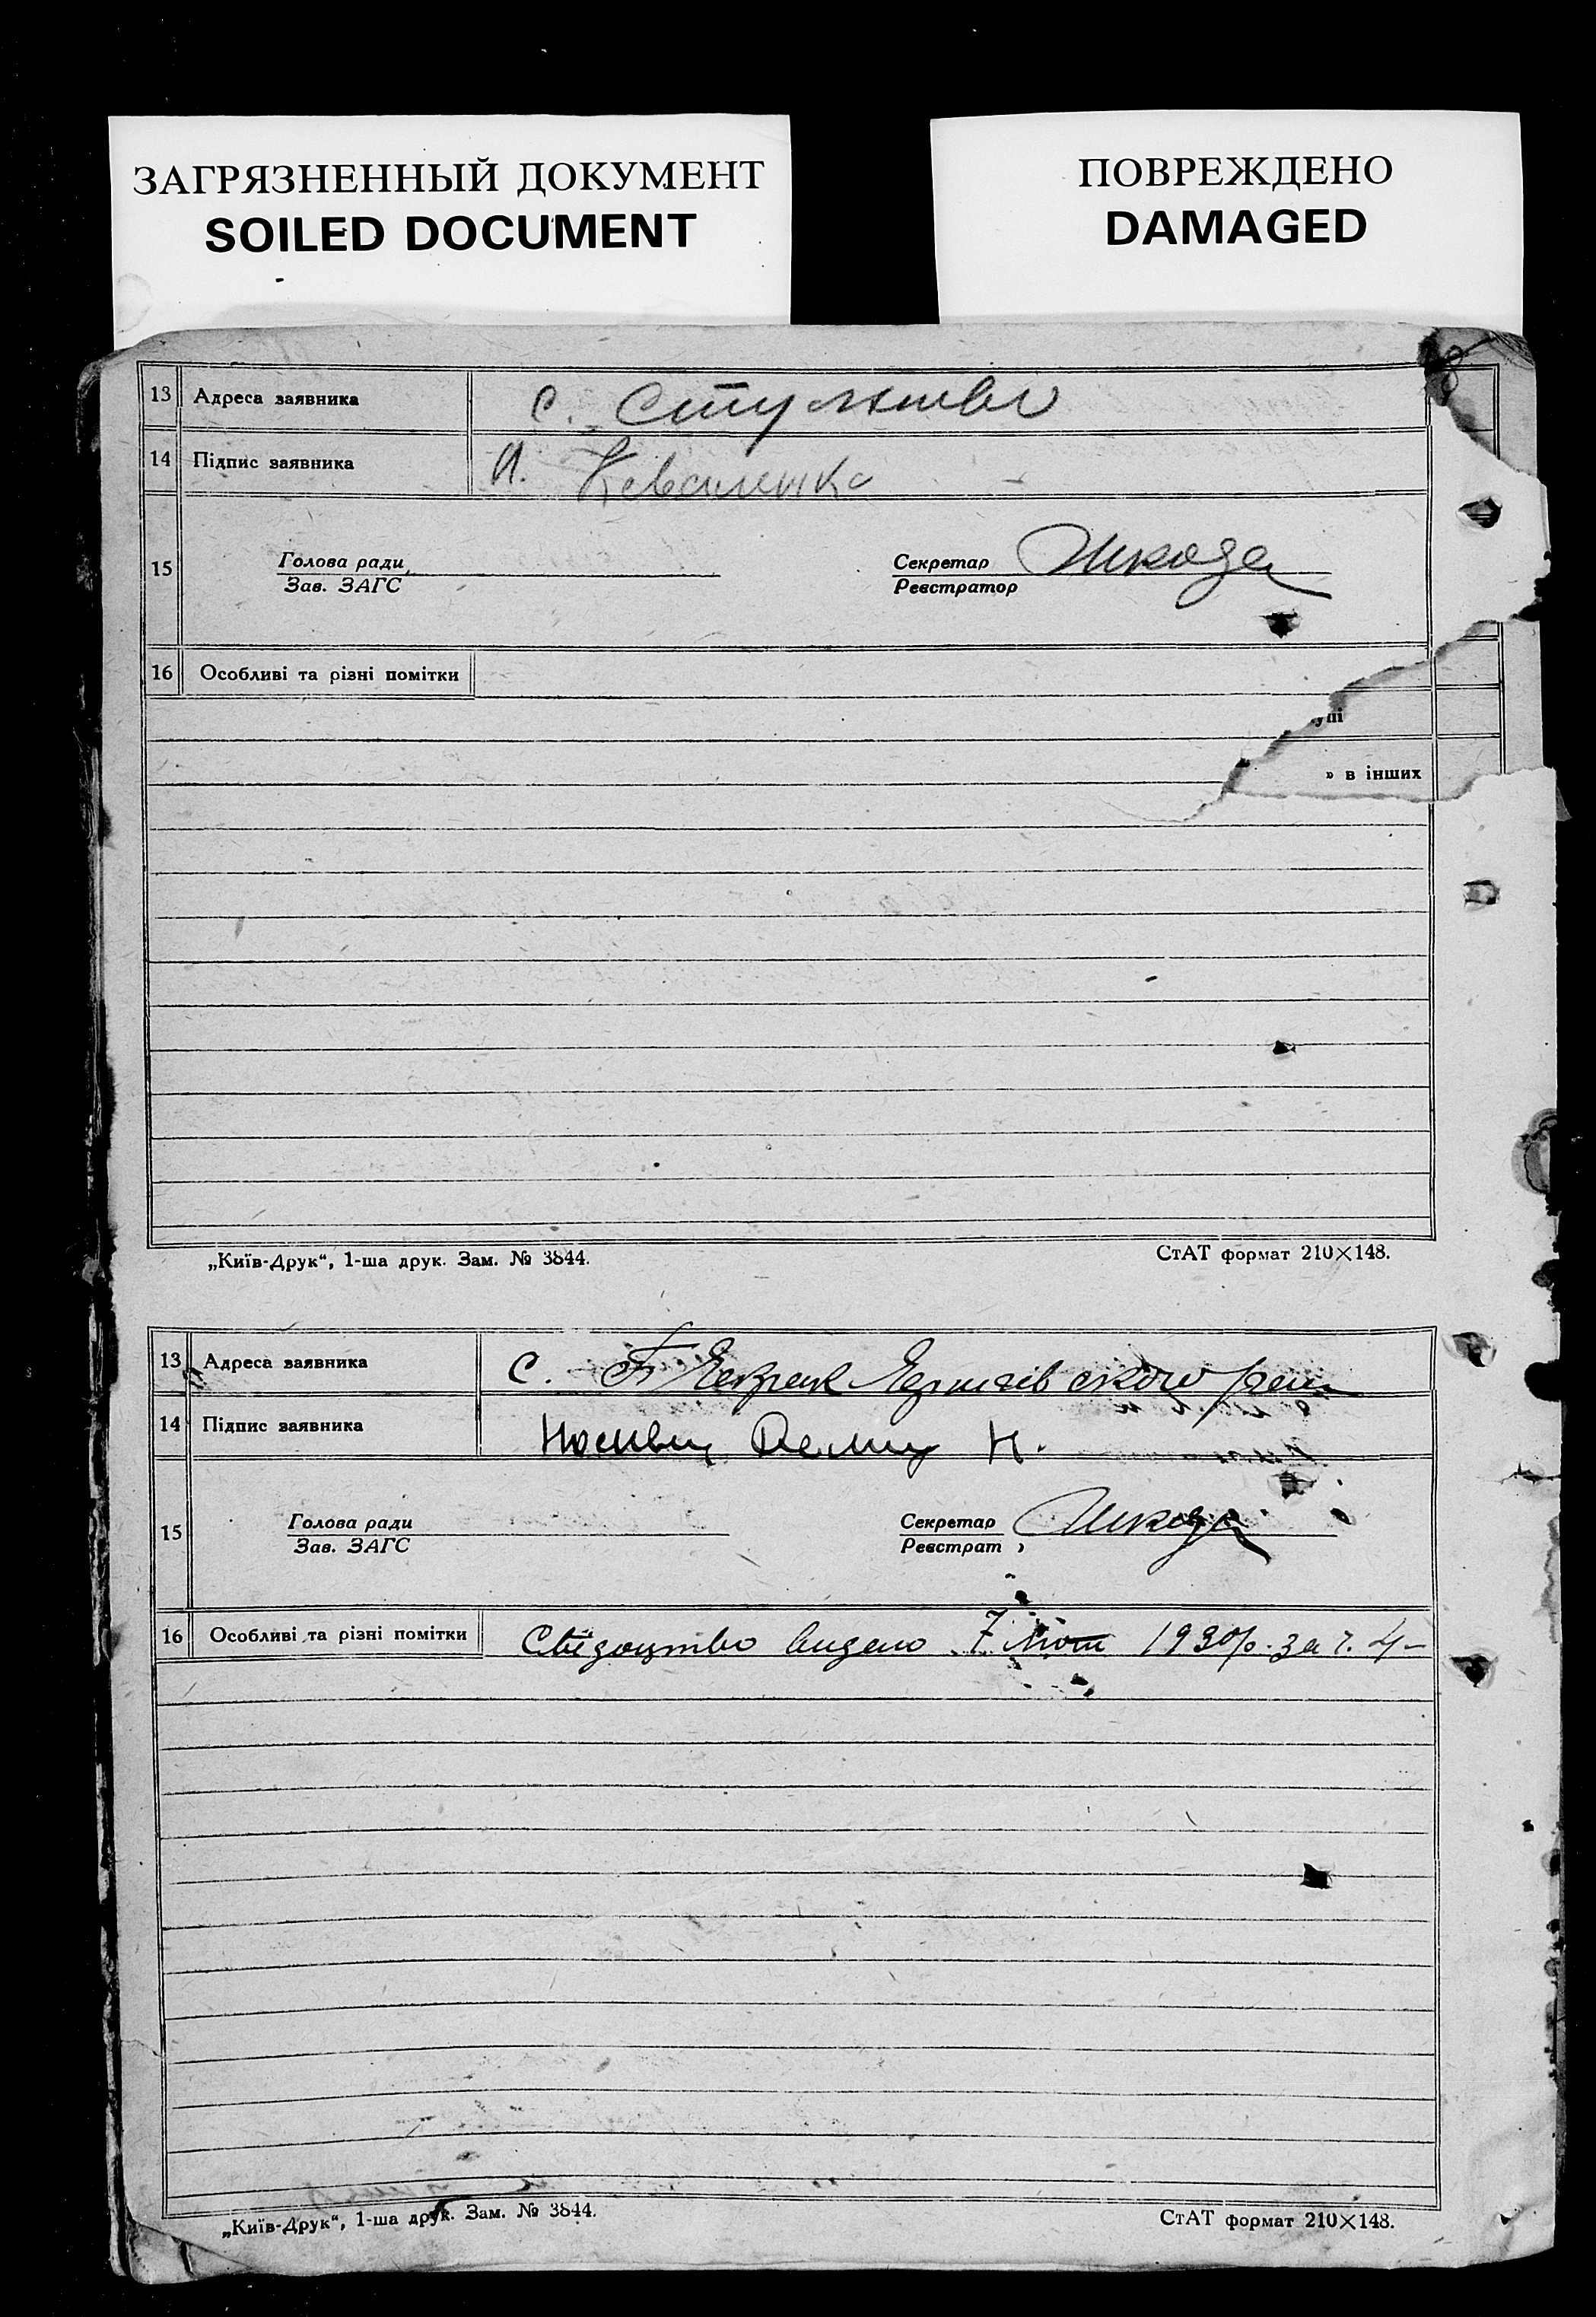 ЗАГРЯЗНЕННЫЙ ДОКУМЕНТ
SOILED DOCUMENT
ПОВРЕЖДЕНО
DAMAGED
13 Адреса заявника с.
14 Підпис заявника
15 Голова ради Зав. ЗАГС Секретар Реєстратор Шкода
16 Особливі та різні помітки
упі
» в інших
„Київ-Друк“, 1-ша друк. Зам. № 3844. СтАТ формат 210×148.
13 Адреса заявника с.
14 Підпис заявника
15 Голова ради Зав. ЗАГС Секретар Реєстрат Шкода
16 Особливі та різні помітки Свідоцтво видано 7 лют 1930 р. за ч. 4-
„Київ-Друк“, 1-ша друк. Зам. № 3844. СтАТ формат 210×148.